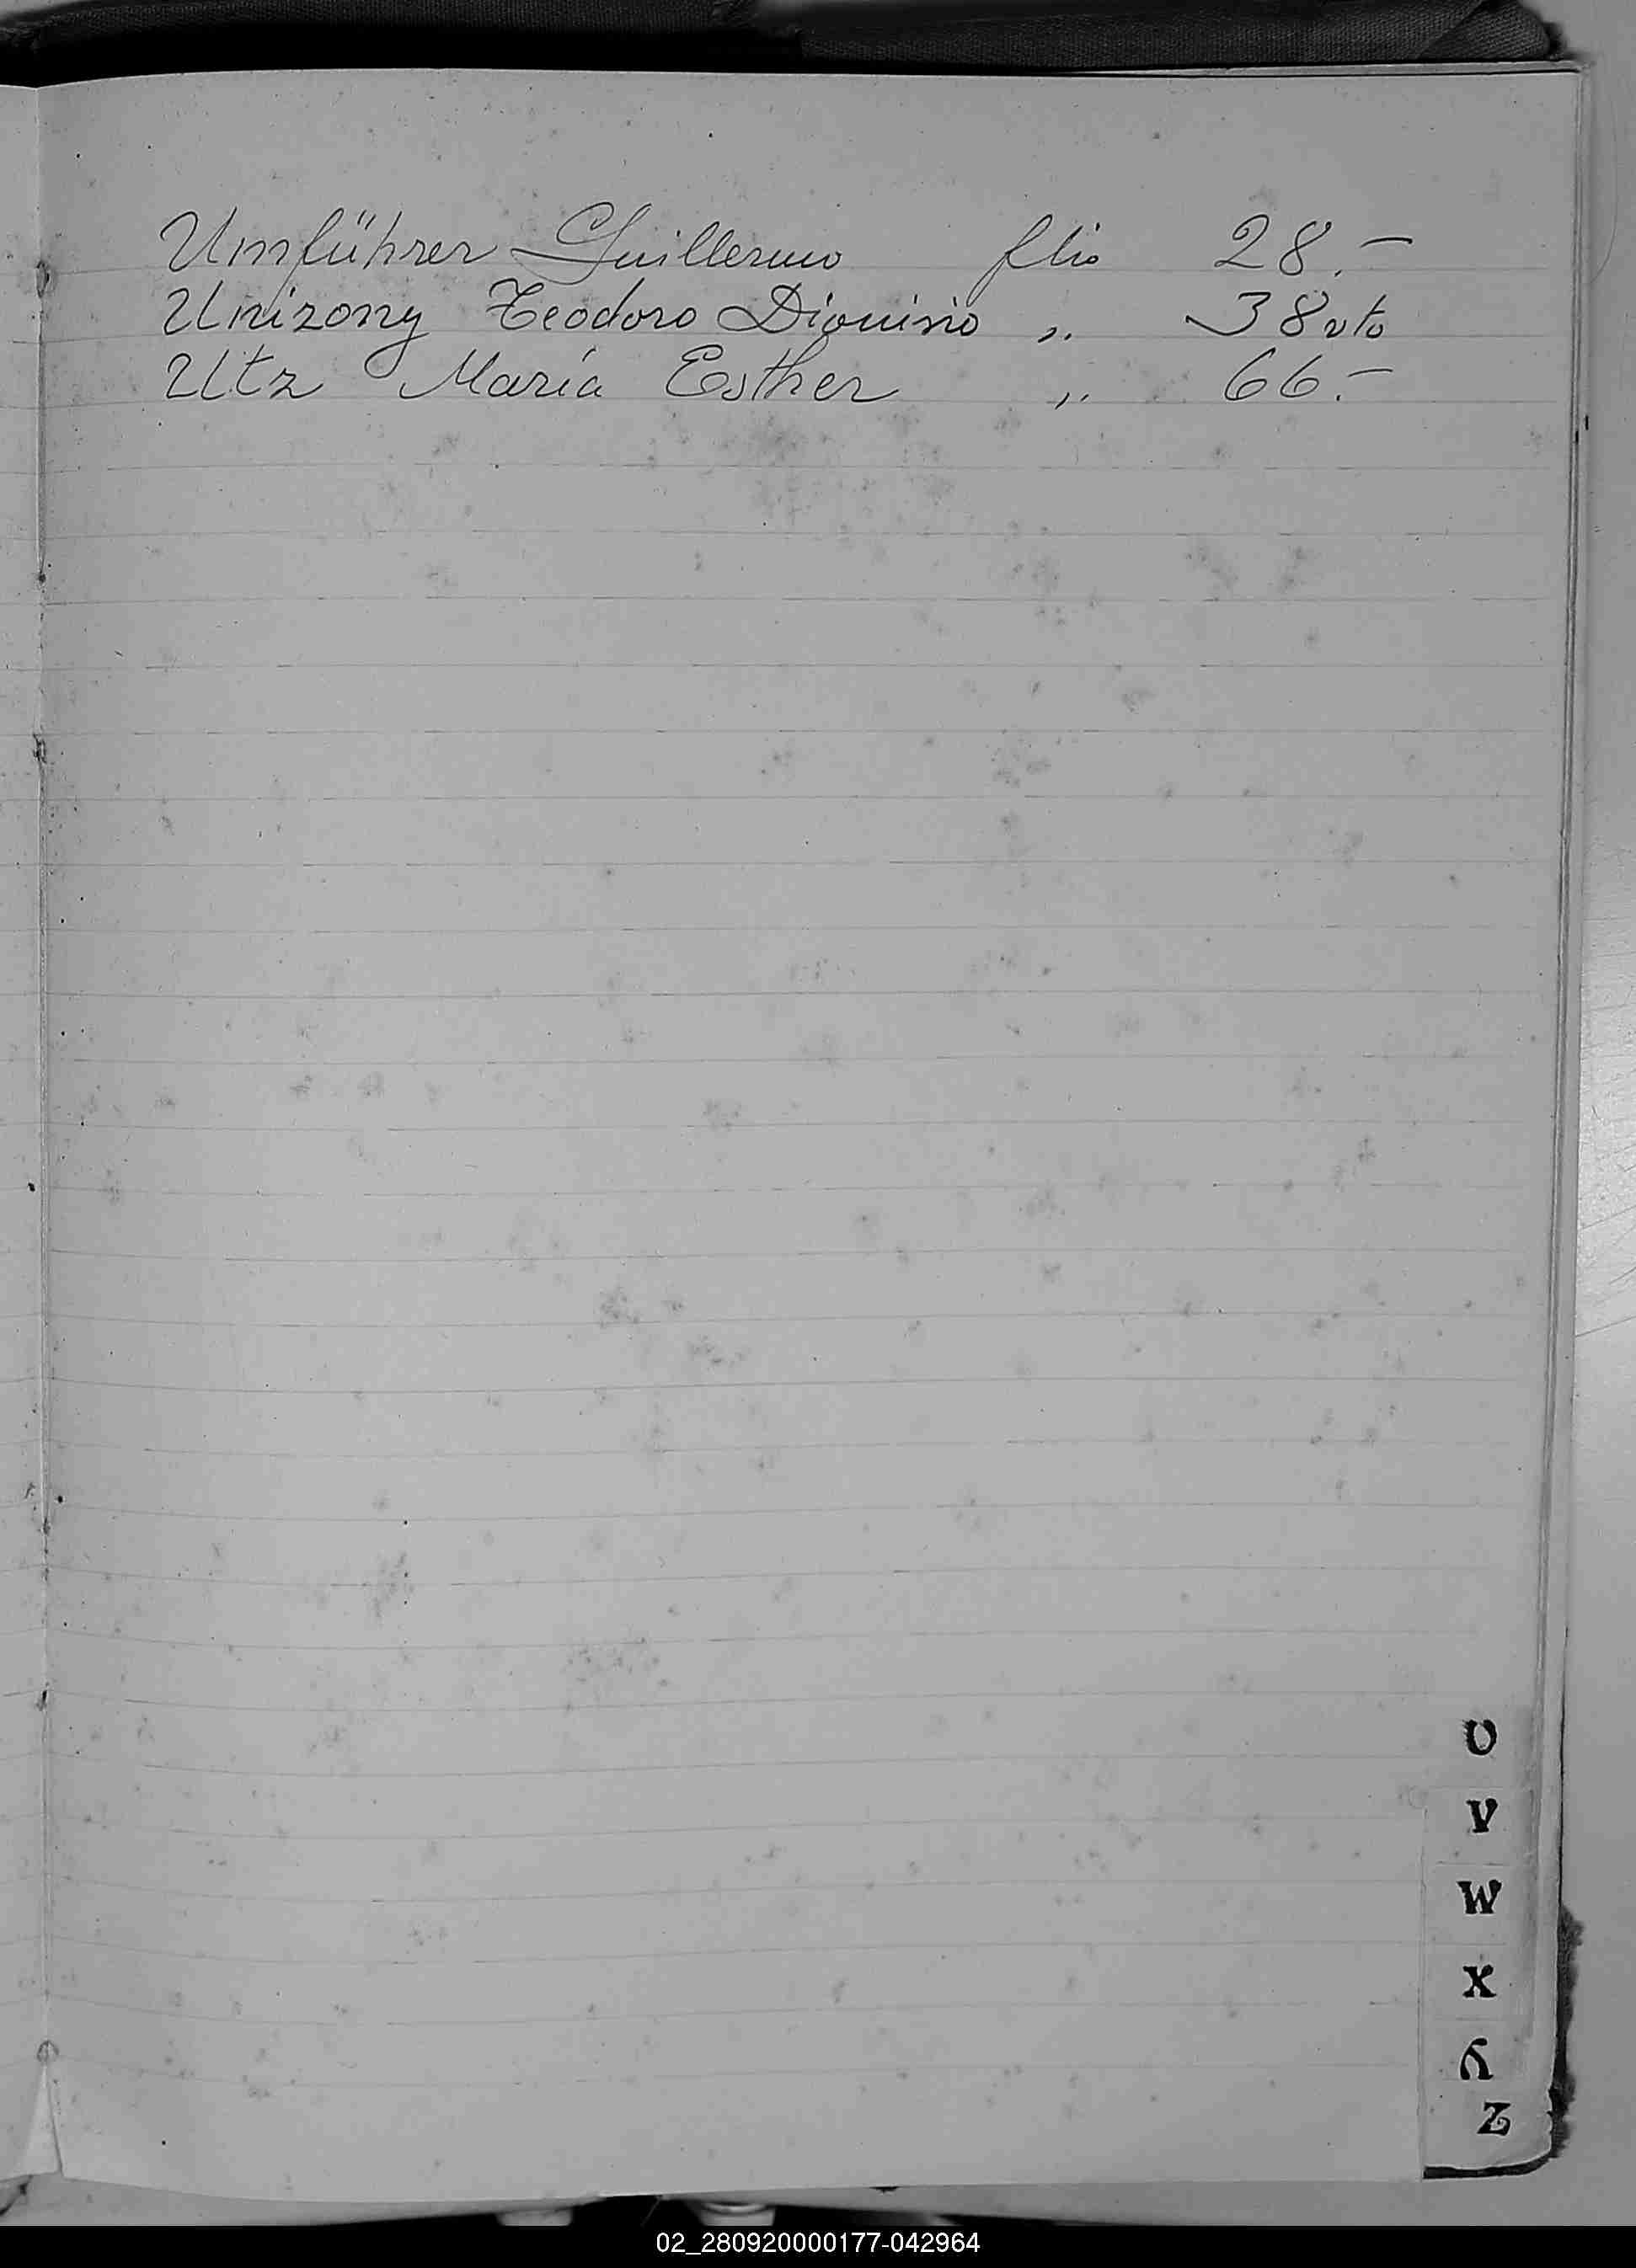 Umführer Guillermo flio 28.-
Unizony Teodoro Dionisio ,, 38 vto
Utz María Esther ,, 66.-
U
V
W
X
Y
Z
02_280920000177-042964